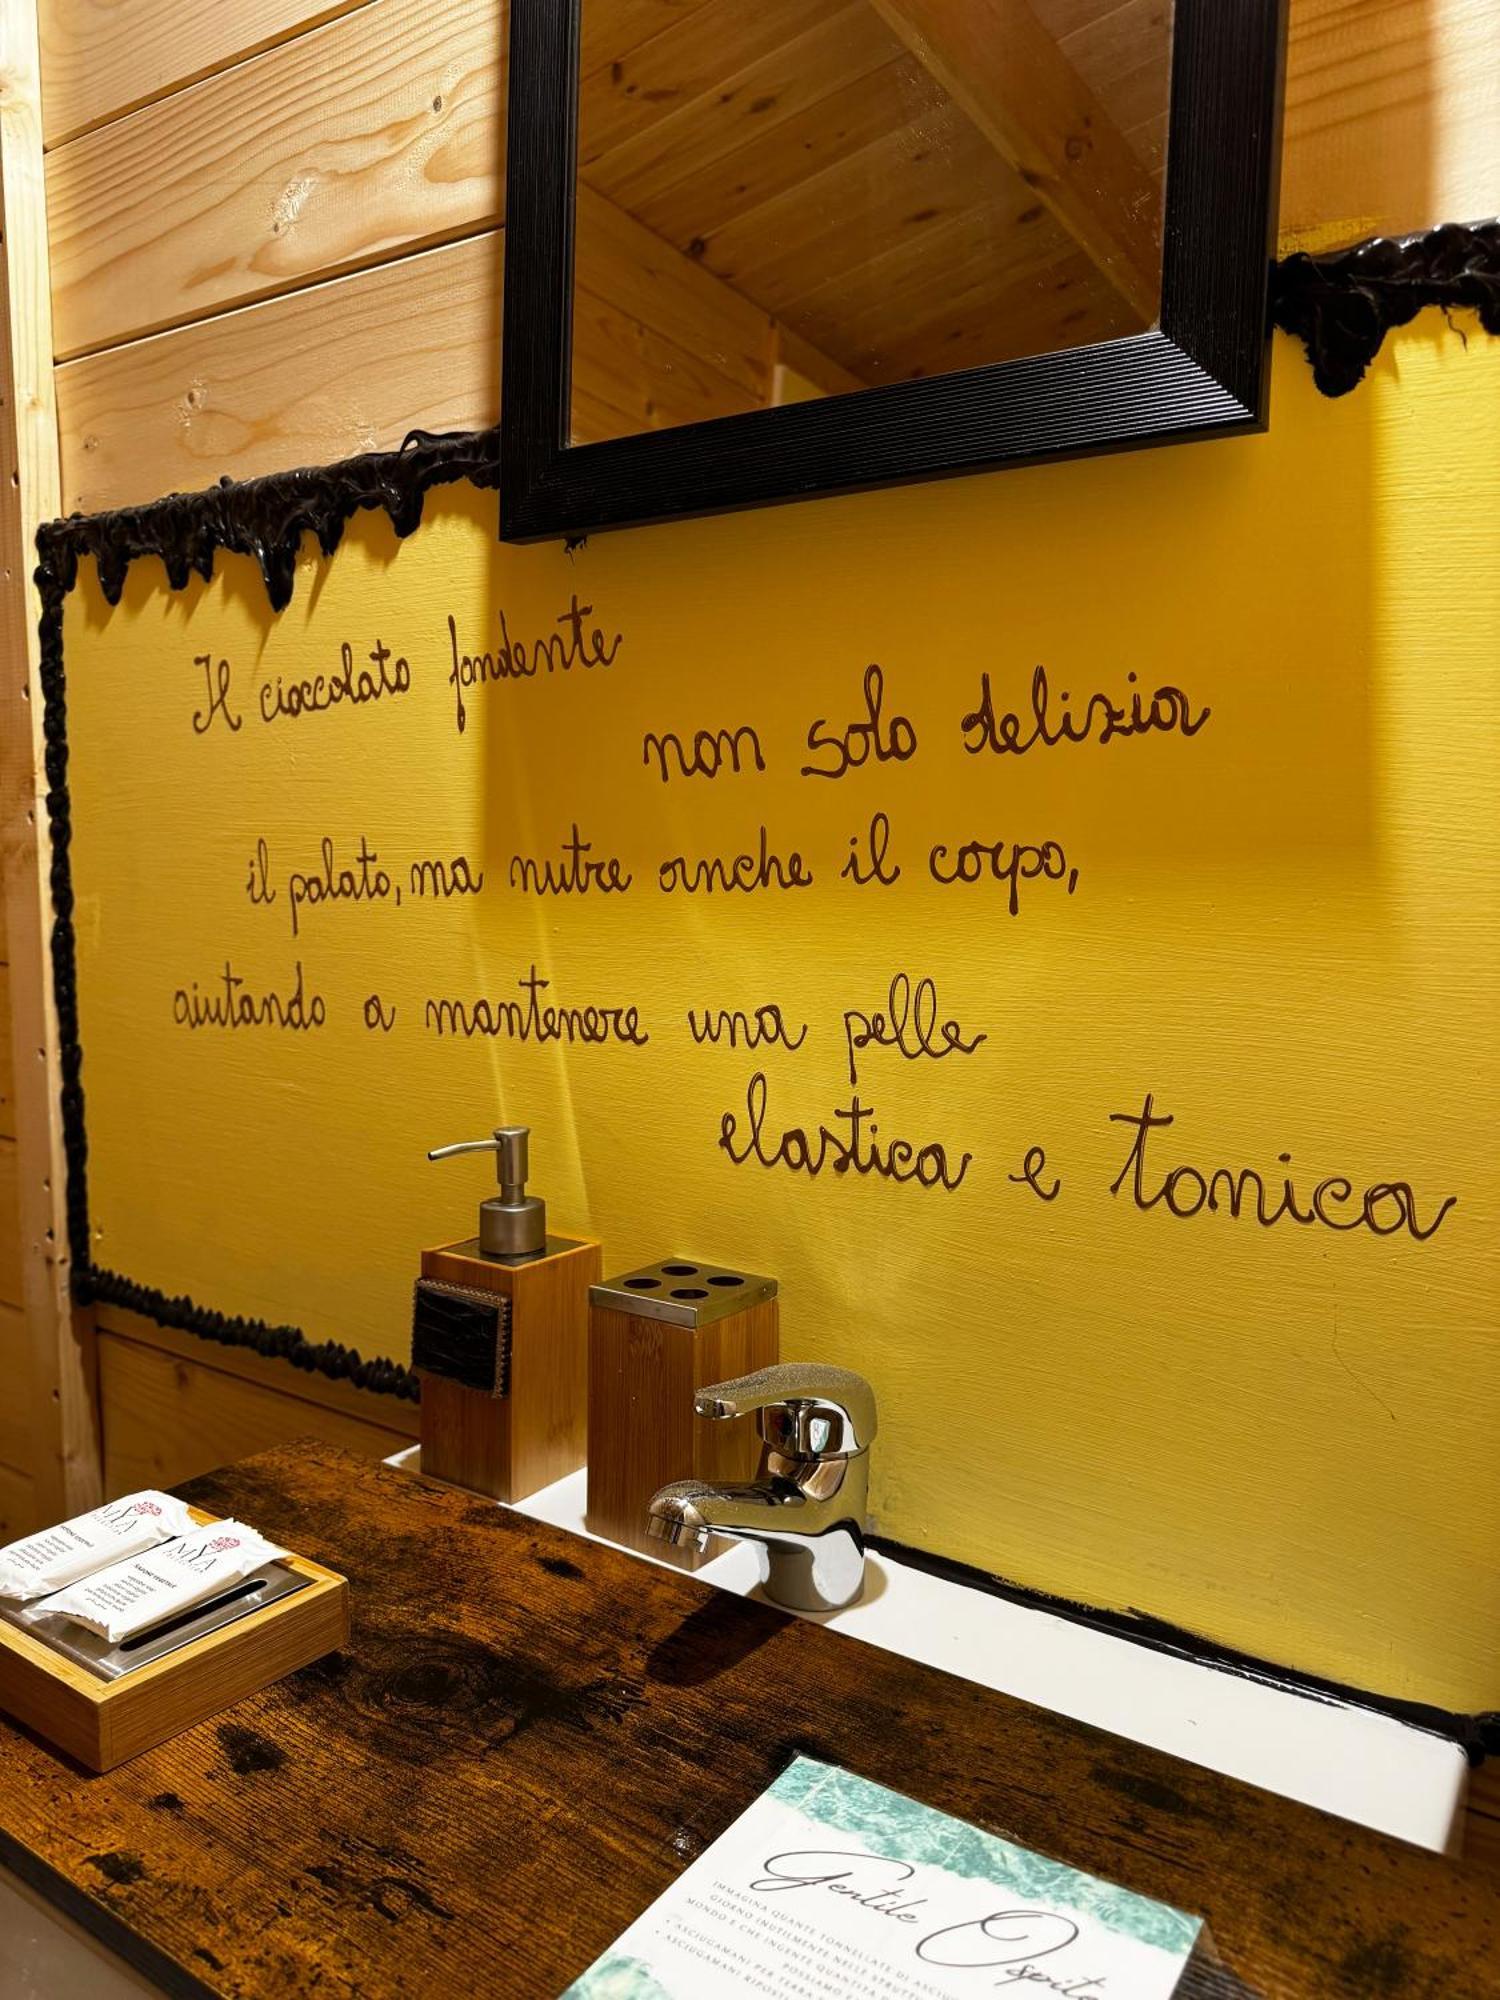 Il cioccolato fondente
non solo delizia
il palato, ma nutre anche il corpo,
aiutando a mantenere una pelle
elastica e tonica
MYA
MYA
Gentile
Ospite
IMMAGINA QUANTE TONNELLATE DI ASCIUG
GIORNO INUTILMENTE NELLE STRUTTU
MONDO E CHE INGENTE QUANTITÀ
POSSIAMO
• ASCIUGAMANI PER TERRA
• ASCIUGAMANI RIPOSTI